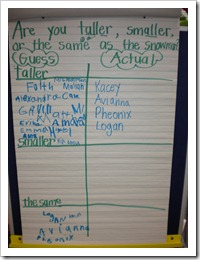 Are you taller, smaller,
or the same as the snowman?
(Guess) (Actual)
taller
Faith
Alexandra Cate
Gavin
Erika
Emma
Kacey
Avianna
Pheonix
Logan
smaller
the same
Logan
Avianna
Pheonix